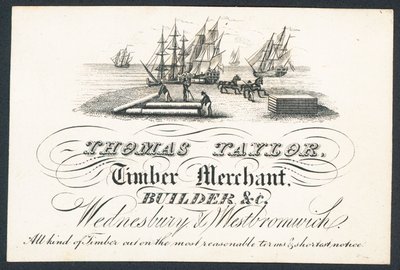 THOMAS TAYLOR,
Timber Merchant,
BUILDER &c,
Wednesbury & Westbromwich.
All kind of Timber cut on the most reasonable terms & shortest notice